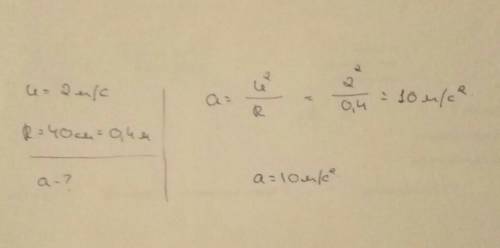 u = 2 м/с
R = 40 см = 0,4 м
a - ?
a = u²/R = 2²/0,4 = 10 м/с²
a = 10 м/с²